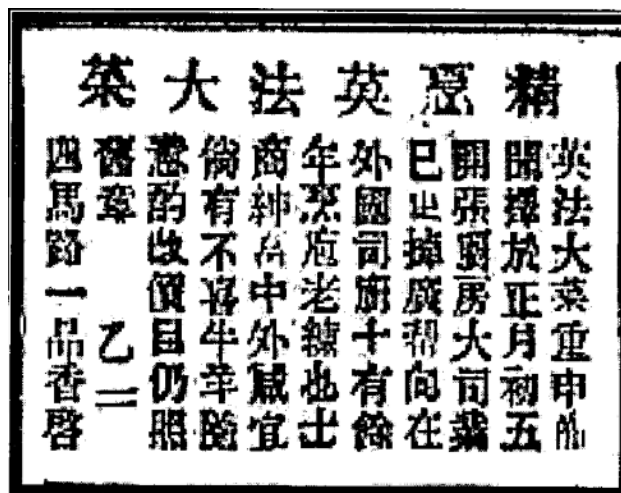 精烹英法大菜
英法大菜重申
開擇於正月初五
開張廚房大司務
已掉廣帮向在
外國司廚十有餘
年烹庖老練也士
商紳中外咸宜
倘有不喜牛羊隨
意酌改價目仍照
舊章 乙二
四馬路一品香啓